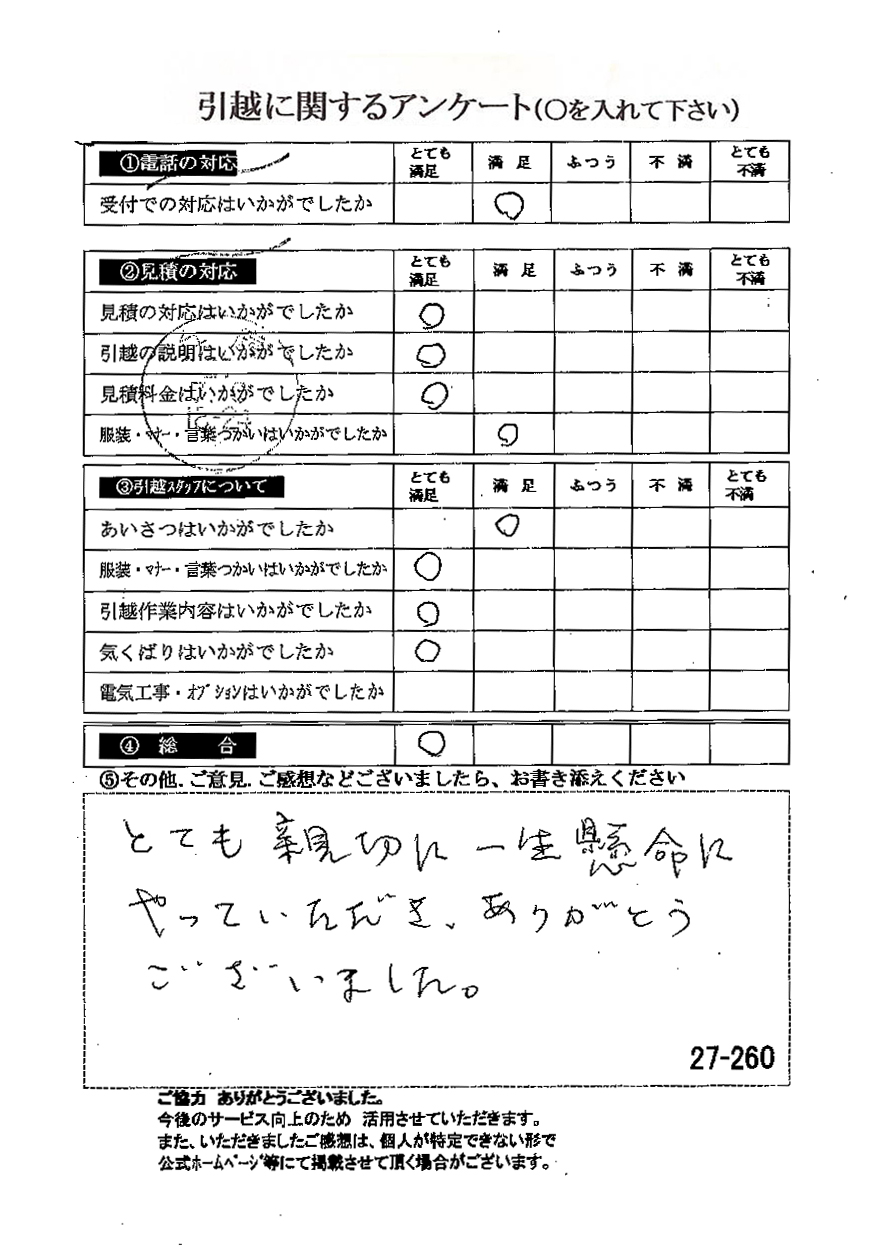 引越に関するアンケート(○を入れて下さい)
①電話の対応 とても満足 満足 ふつう 不満 とても不満
受付での対応はいかがでしたか ○
②見積の対応 とても満足 満足 ふつう 不満 とても不満
見積の対応はいかがでしたか ○
引越の説明はいかがでしたか ○
見積料金はいかがでしたか ○
服装・マナー・言葉づかいはいかがでしたか ○
③引越スタッフについて とても満足 満足 ふつう 不満 とても不満
あいさつはいかがでしたか ○
服装・マナー・言葉づかいはいかがでしたか ○
引越作業内容はいかがでしたか ○
気くばりはいかがでしたか ○
電気工事・オプションはいかがでしたか
④総合 ○
⑤その他、ご意見、ご感想などございましたら、お書き添えください
とても親切に一生懸命に
やっていただき、ありがとう
ございました。
27-260
ご協力 ありがとうございました。
今後のサービス向上のため 活用させていただきます。
また、いただきましたご感想は、個人が特定できない形で
公式ホームページ等にて掲載させて頂く場合がございます。